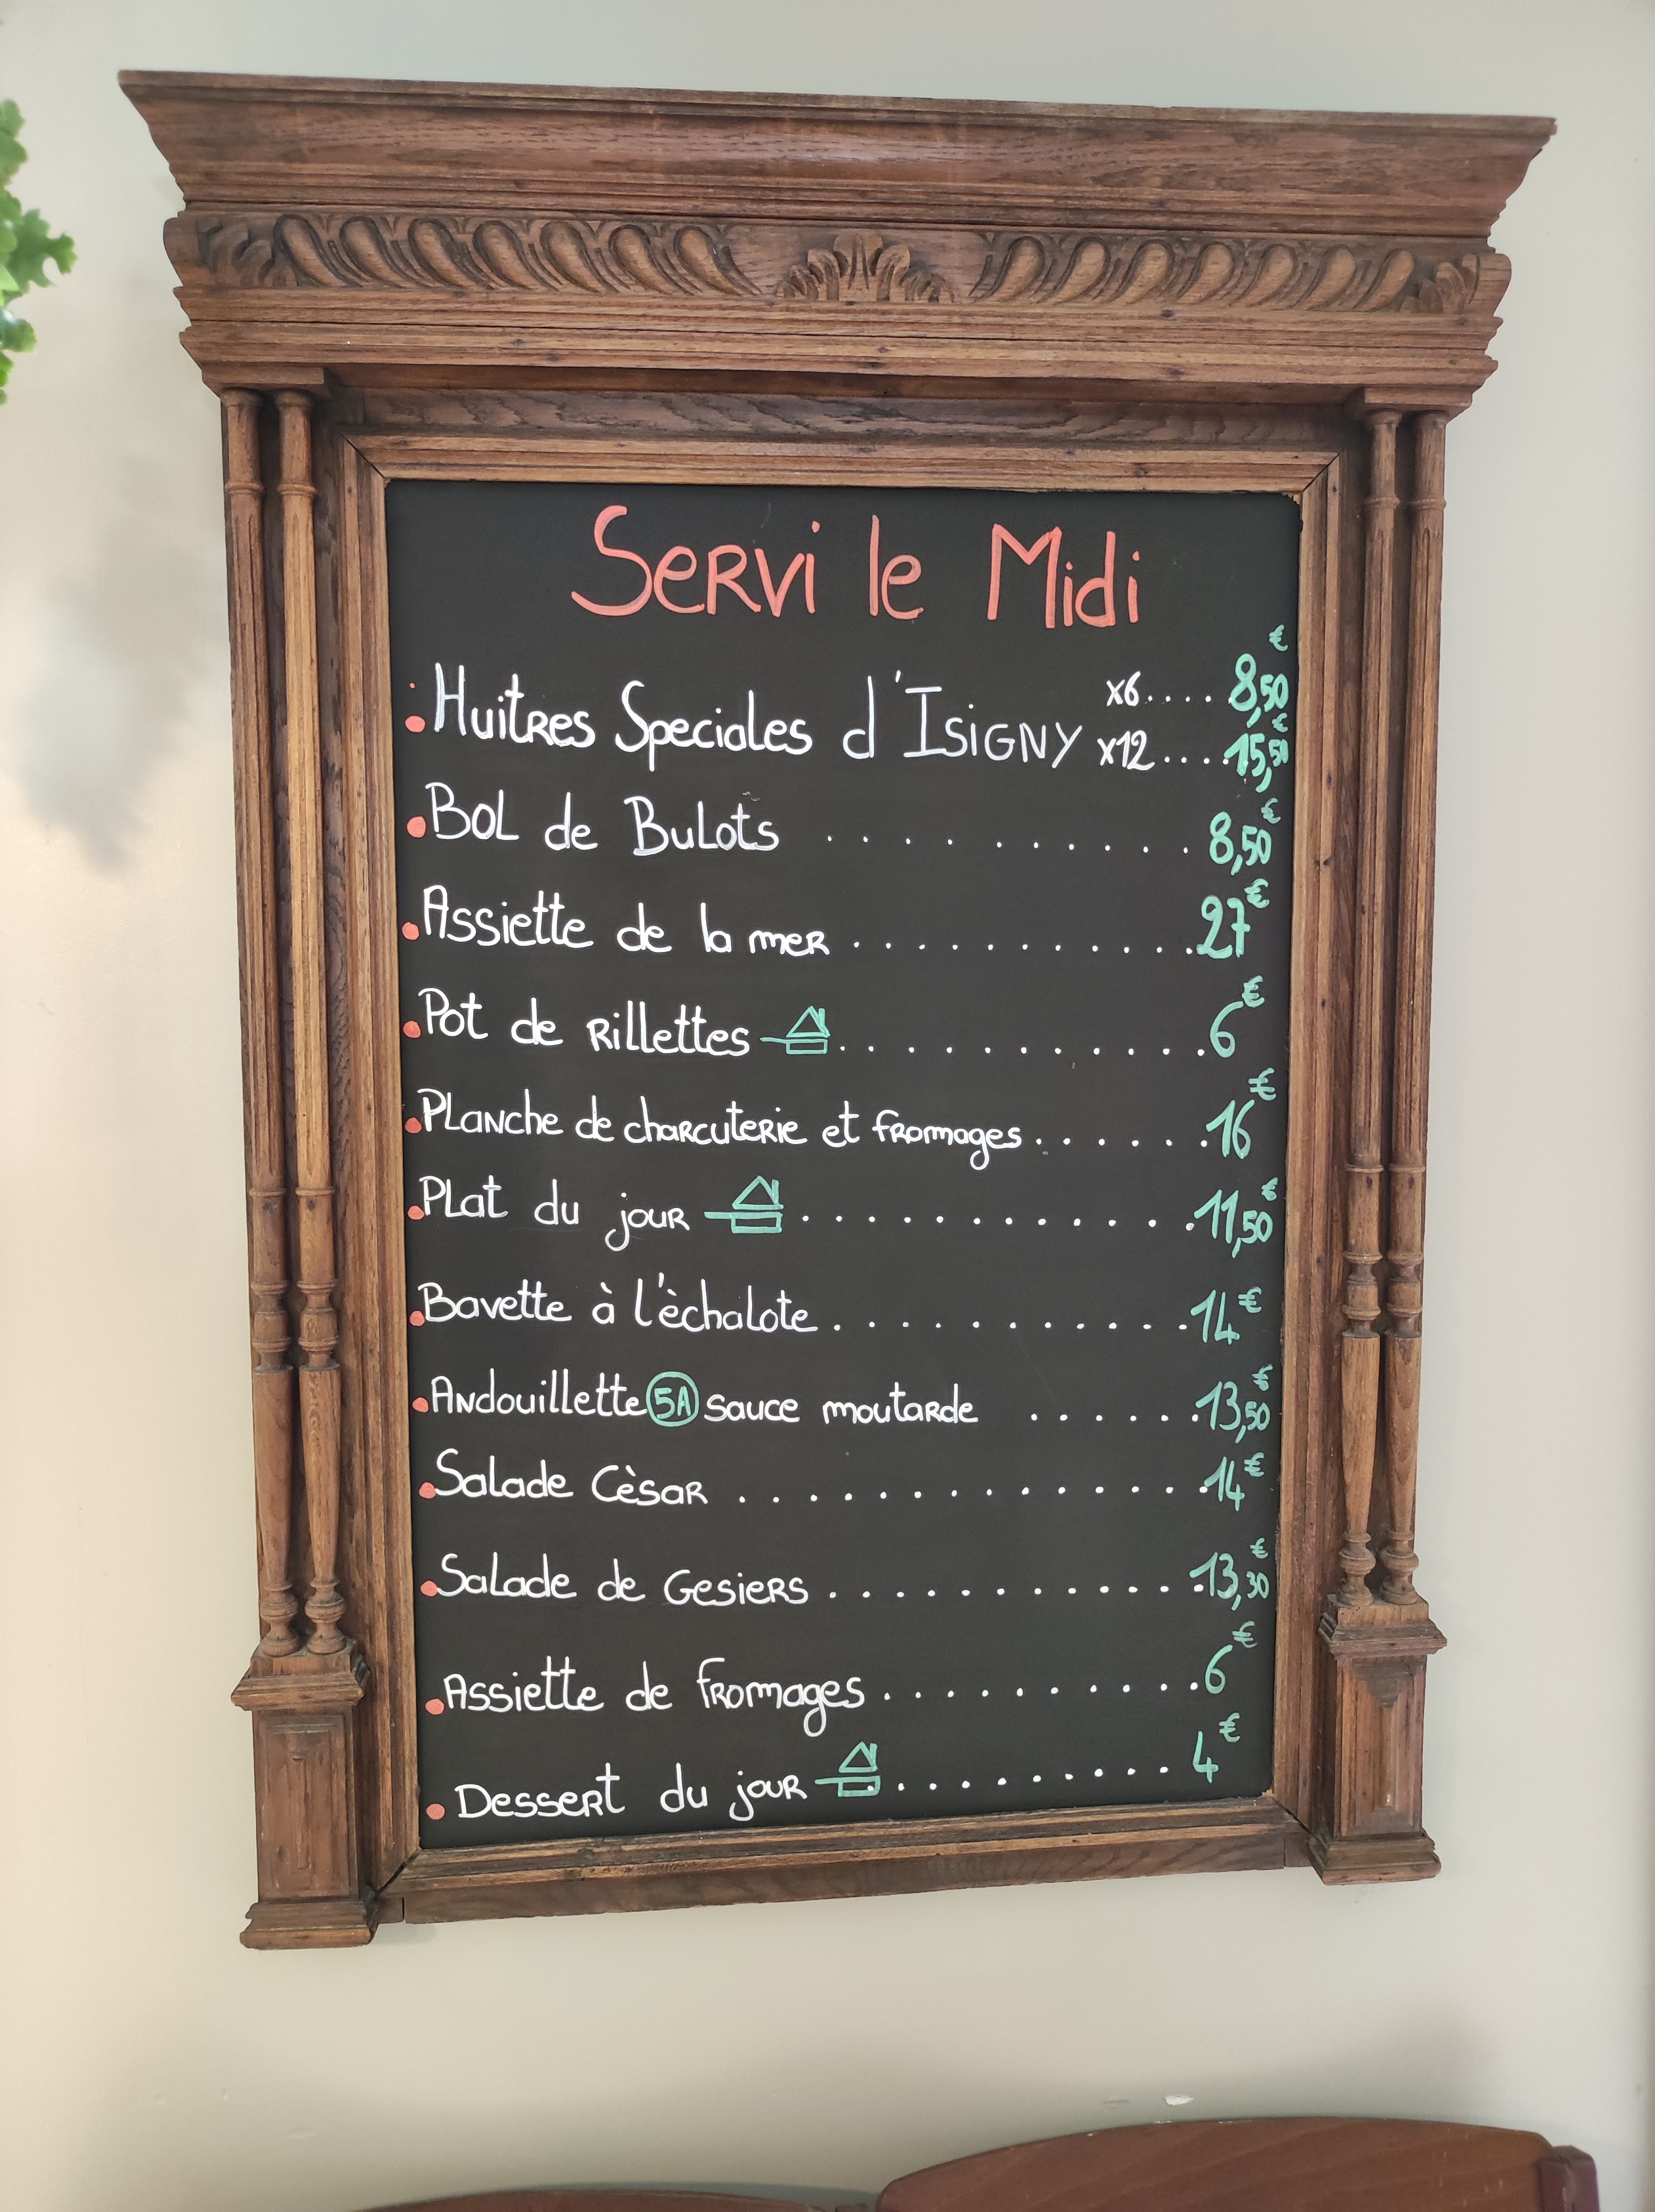 Servi le Midi
Huitres Speciales d'Isigny x6.... 8,50€
x12....15,50€
Bol de Bulots . . . . . . . . . 8,50€
Assiette de la mer . . . . . . . . . . .27€
Pot de Rillettes . . . . . . . . . . . .6€
Planche de charcuterie et fromages . . . . . .16€
Plat du jour . . . . . . . . . . . .11,50€
Bavette à l'èchalote . . . . . . . . . . .14€
Andouillette 5A sauce moutarde . . . . . .13,50€
Salade Cèsar . . . . . . . . . . . . . .14€
Salade de Gesiers . . . . . . . . . . . .13,30€
Assiette de fromages . . . . . . . . . . .6€
Dessert du jour . . . . . . . . . 4€